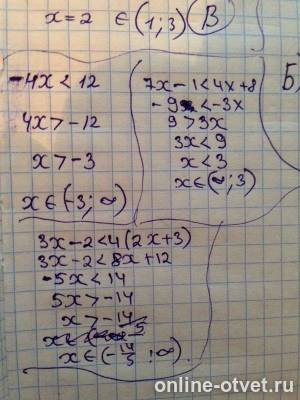 x=2 ∈(1;3) В
-4x<12
4x>-12
x>-3
x∈(-3;∞)
7x-1<4x+8
-9<-3x
9>3x
3x<9
x<3
x∈(∞;3)
Б)
3x-2<4(2x+3)
3x-2<8x+12
-5x<14
5x>-14
x>-14/5
x∈(-14/5;∞)
online-otvet.ru